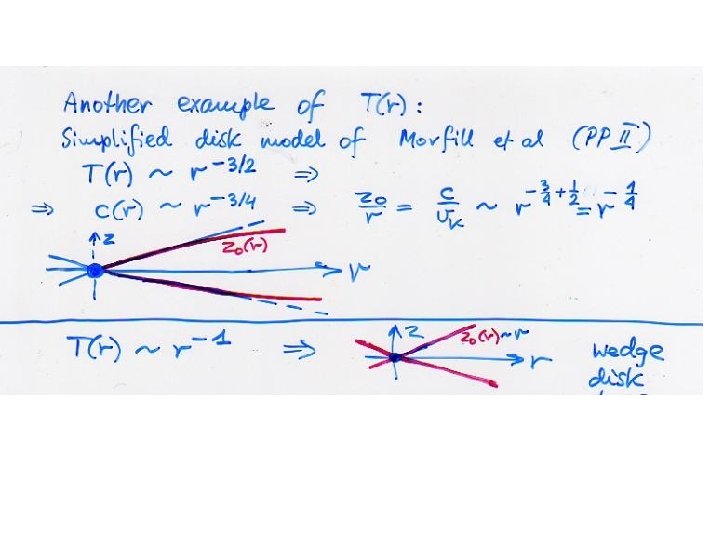 Another example of T(r):
Simplified disk model of Morfill et al (PP II)
T(r) ~ r^{-3/2} ⇒
⇒ c(r) ~ r^{-3/4} ⇒ z₀/r = c/v_K ~ r^{-3/4+1/2} = r^{-1/4}
z
z₀(r)
r
T(r) ~ r^{-1} ⇒
z
z₀(r)~r
r
wedge
disk